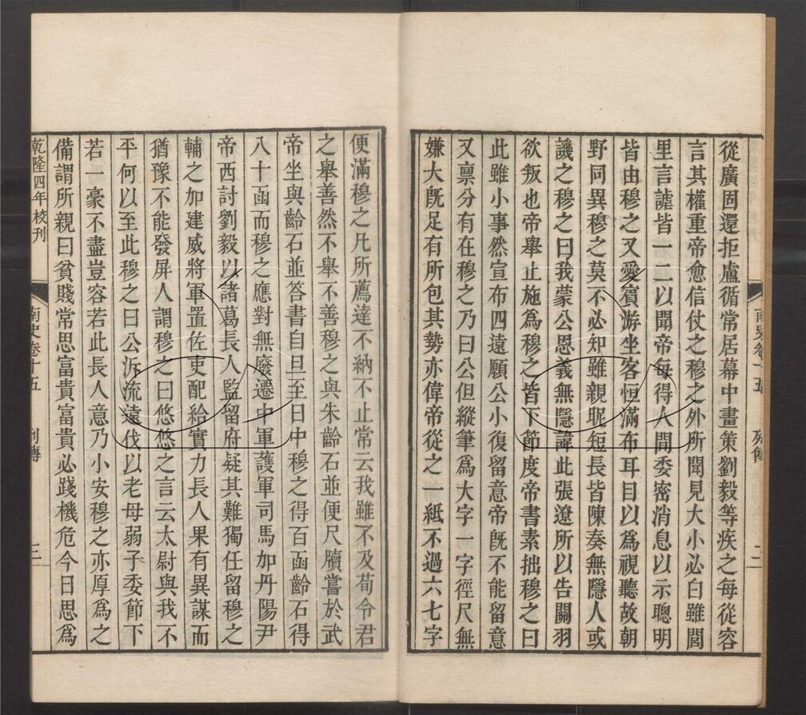 從廣固還拒盧循常居幕中畫策劉毅等疾之每從容
言其權重帝愈信仗之穆之外所聞見大小必白雖閭
里言謔皆一二以聞帝每得人間委密消息以示聰明
皆由穆之又愛賓游坐客恒滿布耳目以為視聽故朝
野同異穆之莫不必知雖親昵短長皆陳奏無隱人或
譏之穆之曰我蒙公恩義無隱諱此張遼所以告關羽
欲叛也帝舉止施為穆之皆下節度帝書素拙穆之曰
此雖小事然宣布四遠願公小復留意帝既不能留意
又稟分有在穆之乃曰公但縱筆為大字一字徑尺無
嫌大既足有所包其勢亦偉帝從之一紙不過六七字
便滿穆之凡所薦達不納不止常云我雖不及荀令君
之舉善然不舉不善穆之與朱齡石並便尺牘嘗於武
帝坐與齡石並答書自旦至日中穆之得百函齡石得
八十函而穆之應對無廢遷中軍護軍司馬加丹陽尹
帝西討劉毅以諸葛長人監留府疑其難獨任留穆之
輔之加建威將軍置佐吏配給實力長人果有異謀而
猶豫不能發屏人謂穆之曰悠悠之言云太尉與我不
平何以至此穆之曰公泝流遠伐以老母弱子委節下
若一豪不盡豈容若此長人意乃小安穆之亦厚為之
備謂所親曰貧賤常思富貴富貴必踐機危今日思為
乾隆四年校刊
南史卷十五
列傳
三